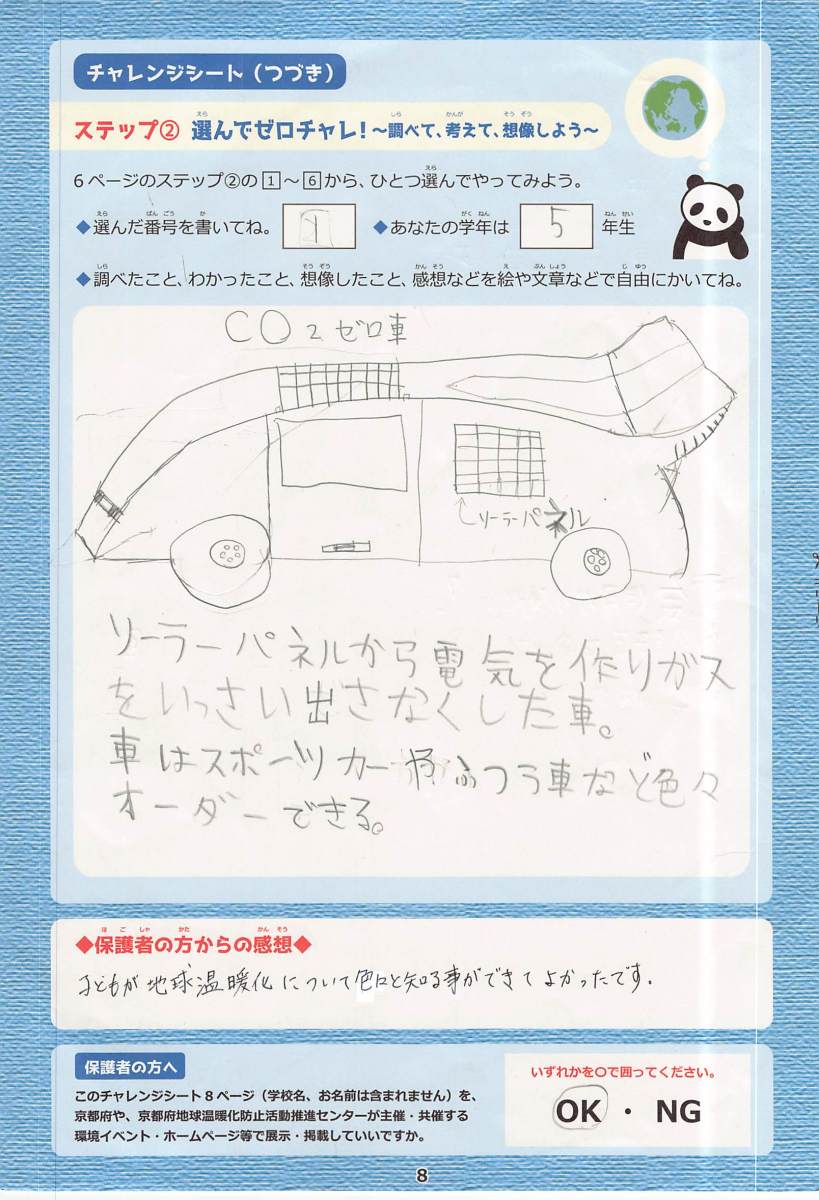 チャレンジシート（つづき）
ステップ② 選んでゼロチャレ！～調べて、考えて、想像しよう～
6ページのステップ②の1～6から、ひとつ選んでやってみよう。
◆選んだ番号を書いてね。 1 ◆あなたの学年は 5 年生
◆調べたこと、わかったこと、想像したこと、感想などを絵や文章などで自由にかいてね。
CO2ゼロ車
ソーラーパネル
ソーラーパネルから電気を作りガス
をいっさい出さなくした車。
車はスポーツカーやふつう車など色々
オーダーできる。
◆保護者の方からの感想◆
子どもが地球温暖化について色々と知る事ができてよかったです.
保護者の方へ
いずれかを〇で囲ってください。
このチャレンジシート8ページ（学校名、お名前は含まれません）を、
京都府や、京都府地球温暖化防止活動推進センターが主催・共催する
環境イベント・ホームページ等で展示・掲載していいですか。
OK ・ NG
8